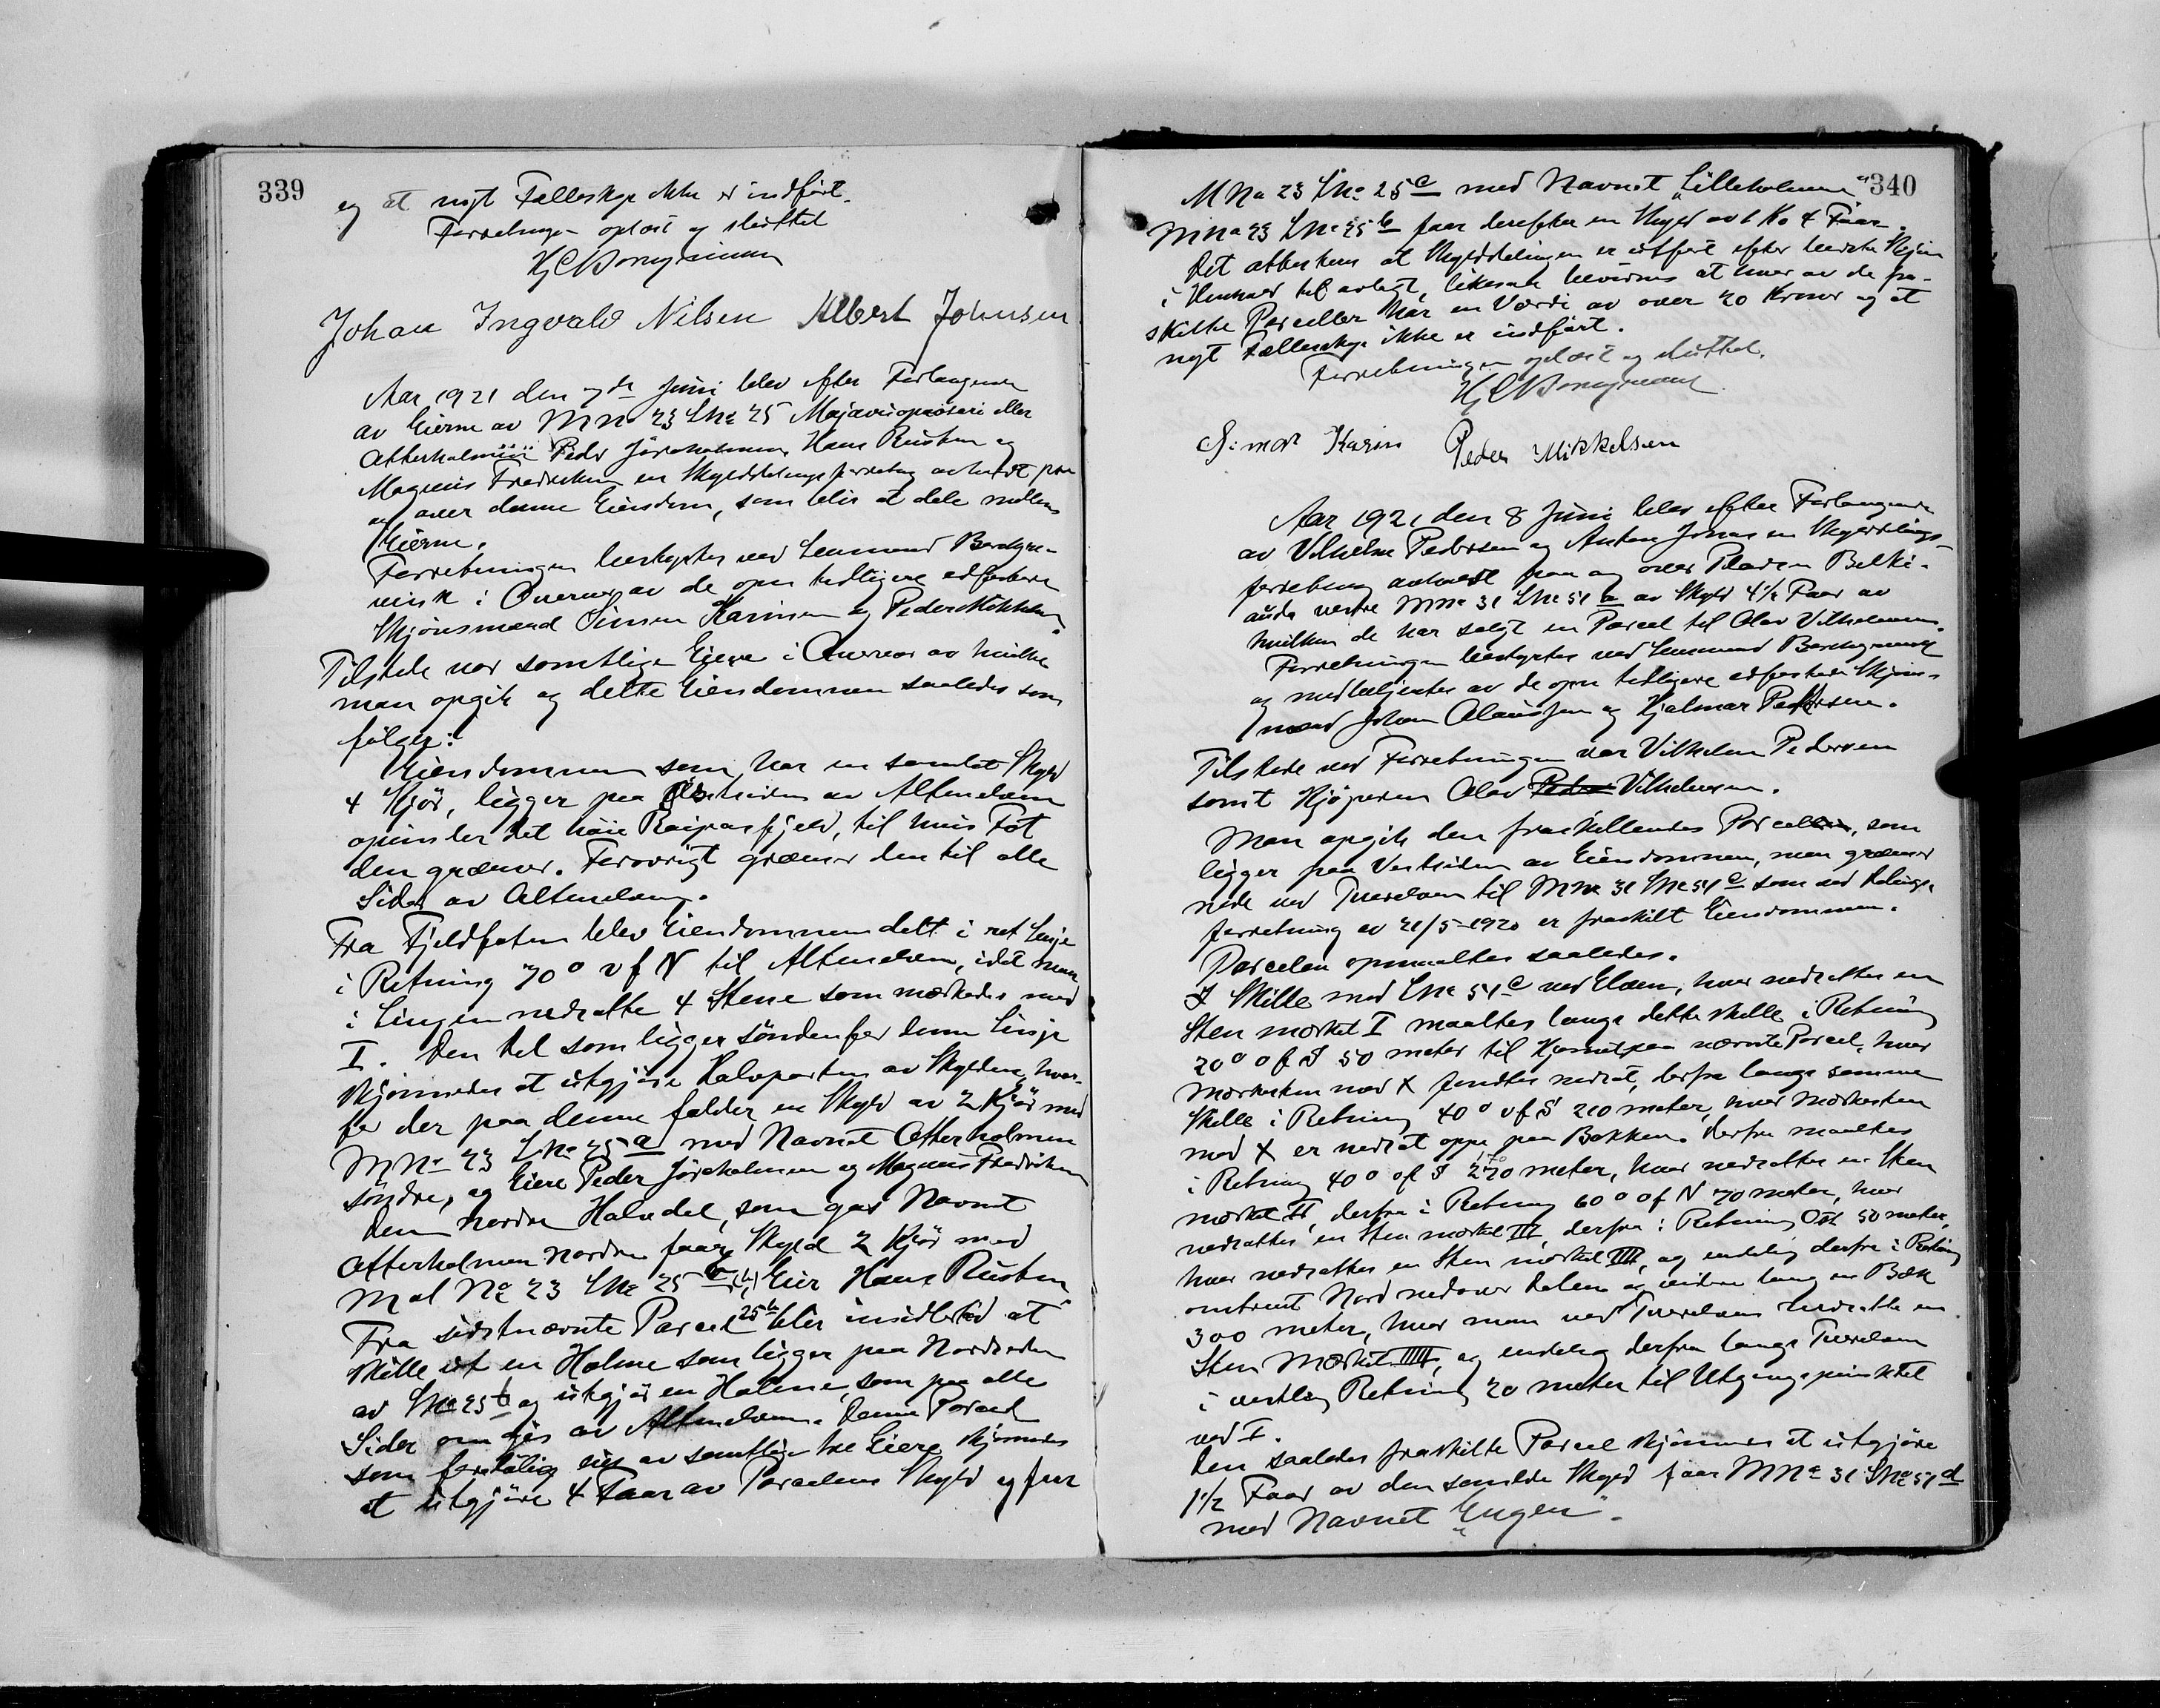 339
og at nogt Fælleskap ikke er indført.
Forretningen oplæst og sluttet
Johan Ingvald Nilsen Albert Johnsen
Aar 1921 den 7de Juni blev efter Forlangende
av Eierne av MNo 23 LNo 25 eller
Peder Jöraholmen, Hans Rusten og
Magnus Fredriksen en Skylddelingsforretning avholdt paa
og over denne Eiendom, som blir at dele mellem
Eierne.
Forretningen bestyrtes ved Lensmand
av de opn tidligere edfæstede
Skjønsmænd Simon Karinen og Peder Mikkelsen.
Tilstede var samtlige Eiere i av hvilke
man opgik og delte Eiendommen saaledes som
følger:
Eiendommen som har en samlet Skyld
4 Kjör, ligger paa av Altenelven
det høie Raipasfjeld, til hvis Fot
den grænser. Forøvrigt grænser den til alle
Sider av Altenelven.
Fra Fjeldfoten blev Eiendommen delt i ret Linje
i Retning 70° v f N til Altenelven, idet man
i Linjen nedsatte 4 Stene som mærkedes med
I. Den Del som ligger søndenfor denne Linje
skjønnedes at utgjøre Halvparten av Skylden, hvor-
for der paa denne falder en Skyld av 2 Kjör med
MNo 23 LNo 25 a med Navnet Atterholmen
søndre, og Eiere Peder Jöraholmen og Magnus Fredriksen
Den nordre Halvdel, som gaves Navnet
Atterholmen nordre faar Skyld 2 Kjör med
Mat No 23 LNo 25 b (b) Eier Hans Rusten
Fra sidstnævnte Parcel 25 b blir imidlertid at
skille ut en Holme som ligger paa Nordsiden
av LNo 25 b og utgjør en Holme, som paa alle
Sider omgies av Altenelven. Denne Parcel
som av samtlige tre Eiere skjønnedes
at utgjøre 4 Faar av Parcelens Skyld og faar
340
MNo 23 LNo 25 c med Navnet "Lilleholmen"
MNo 23 LNo 25 b faar derefter en Skyld av 1 Ko 4 Faar.
Det attesteres at Skylddelingen er utført efter bedste Skjøn
i Henhold til avlagt, likesaa bevidnes at hver av de fra-
skilte Parceller har en Værdi av over 20 Kroner og at
nogt Fælleskap ikke er indført.
Forretningen oplæst og sluttet.
Simon Karin Peder Mikkelsen
Aar 1921 den 8 Juni blev efter Forlangende
av Vilhelm Pedersen og Anton Jonas en Skylddelings-
forretning avholdt paa og over Pladsen
vestre MNo 31 LNo 51 a av Skyld 4½ Faar av
hvilken de har solgt en Parcel til Olav Vilhelmsen.
Forretningen bestyrtes ved Lensmand
og medbetjentes av de opn tidligere edfæstede Skjøns-
mænd Johan Olaussen og Hjalmar Pedersen.
Tilstede ved Forretningen var Vilhelm Pedersen
samt Kjøperen Olav Peder Vilhelmsen.
Man opgik den fraskillendes Parcel, som
ligger paa Vestsiden av Eiendommen, men grænser
nede ved Tverelven til MNo 31 LNo 51 c som ved Delings-
forretning av 21/5-1920 er fraskilt Eiendommen.
Parcelen opmaaltes saaledes.
I Skille med LNo 51 c ved Elven, hvor nedsattes en
Sten mærket I maaltes langs dette Skille i Retning
20° o f S 50 meter til Hjørnet paa nævnte Parcel, hvor
Mærkesten med X fandtes nedsat, derfra langs samme
Skille i Retning 40° v f S 210 meter, hvor Mærkesten
med X er nedsat oppe paa Bakken. Derfra maaltes
i Retning 40° o f S 170 meter, hvor nedsattes en Sten
mærket II, derfra i Retning 60° o f N 70 meter, hvor
nedsattes en Sten mærket III, derfra i Retning Ost 50 meter,
hvor nedsattes en Sten mærket IIII, og endelig derfra i Retning
omtrent Nord nedover Dalen og videre langs en Bæk
300 meter, hvor man ved Tverelven nedsatte en
Sten Mærket IIIII, og endelig derfra langs Tverelven
i vestlig Retning 20 meter til Utgangspunktet
ved I.
Den saaledes fraskilte Parcel skjønnes at utgjøre
1½ Faar av den samlede Skyld faar MNo 31 LNo 51 d
med Navnet "Engen".